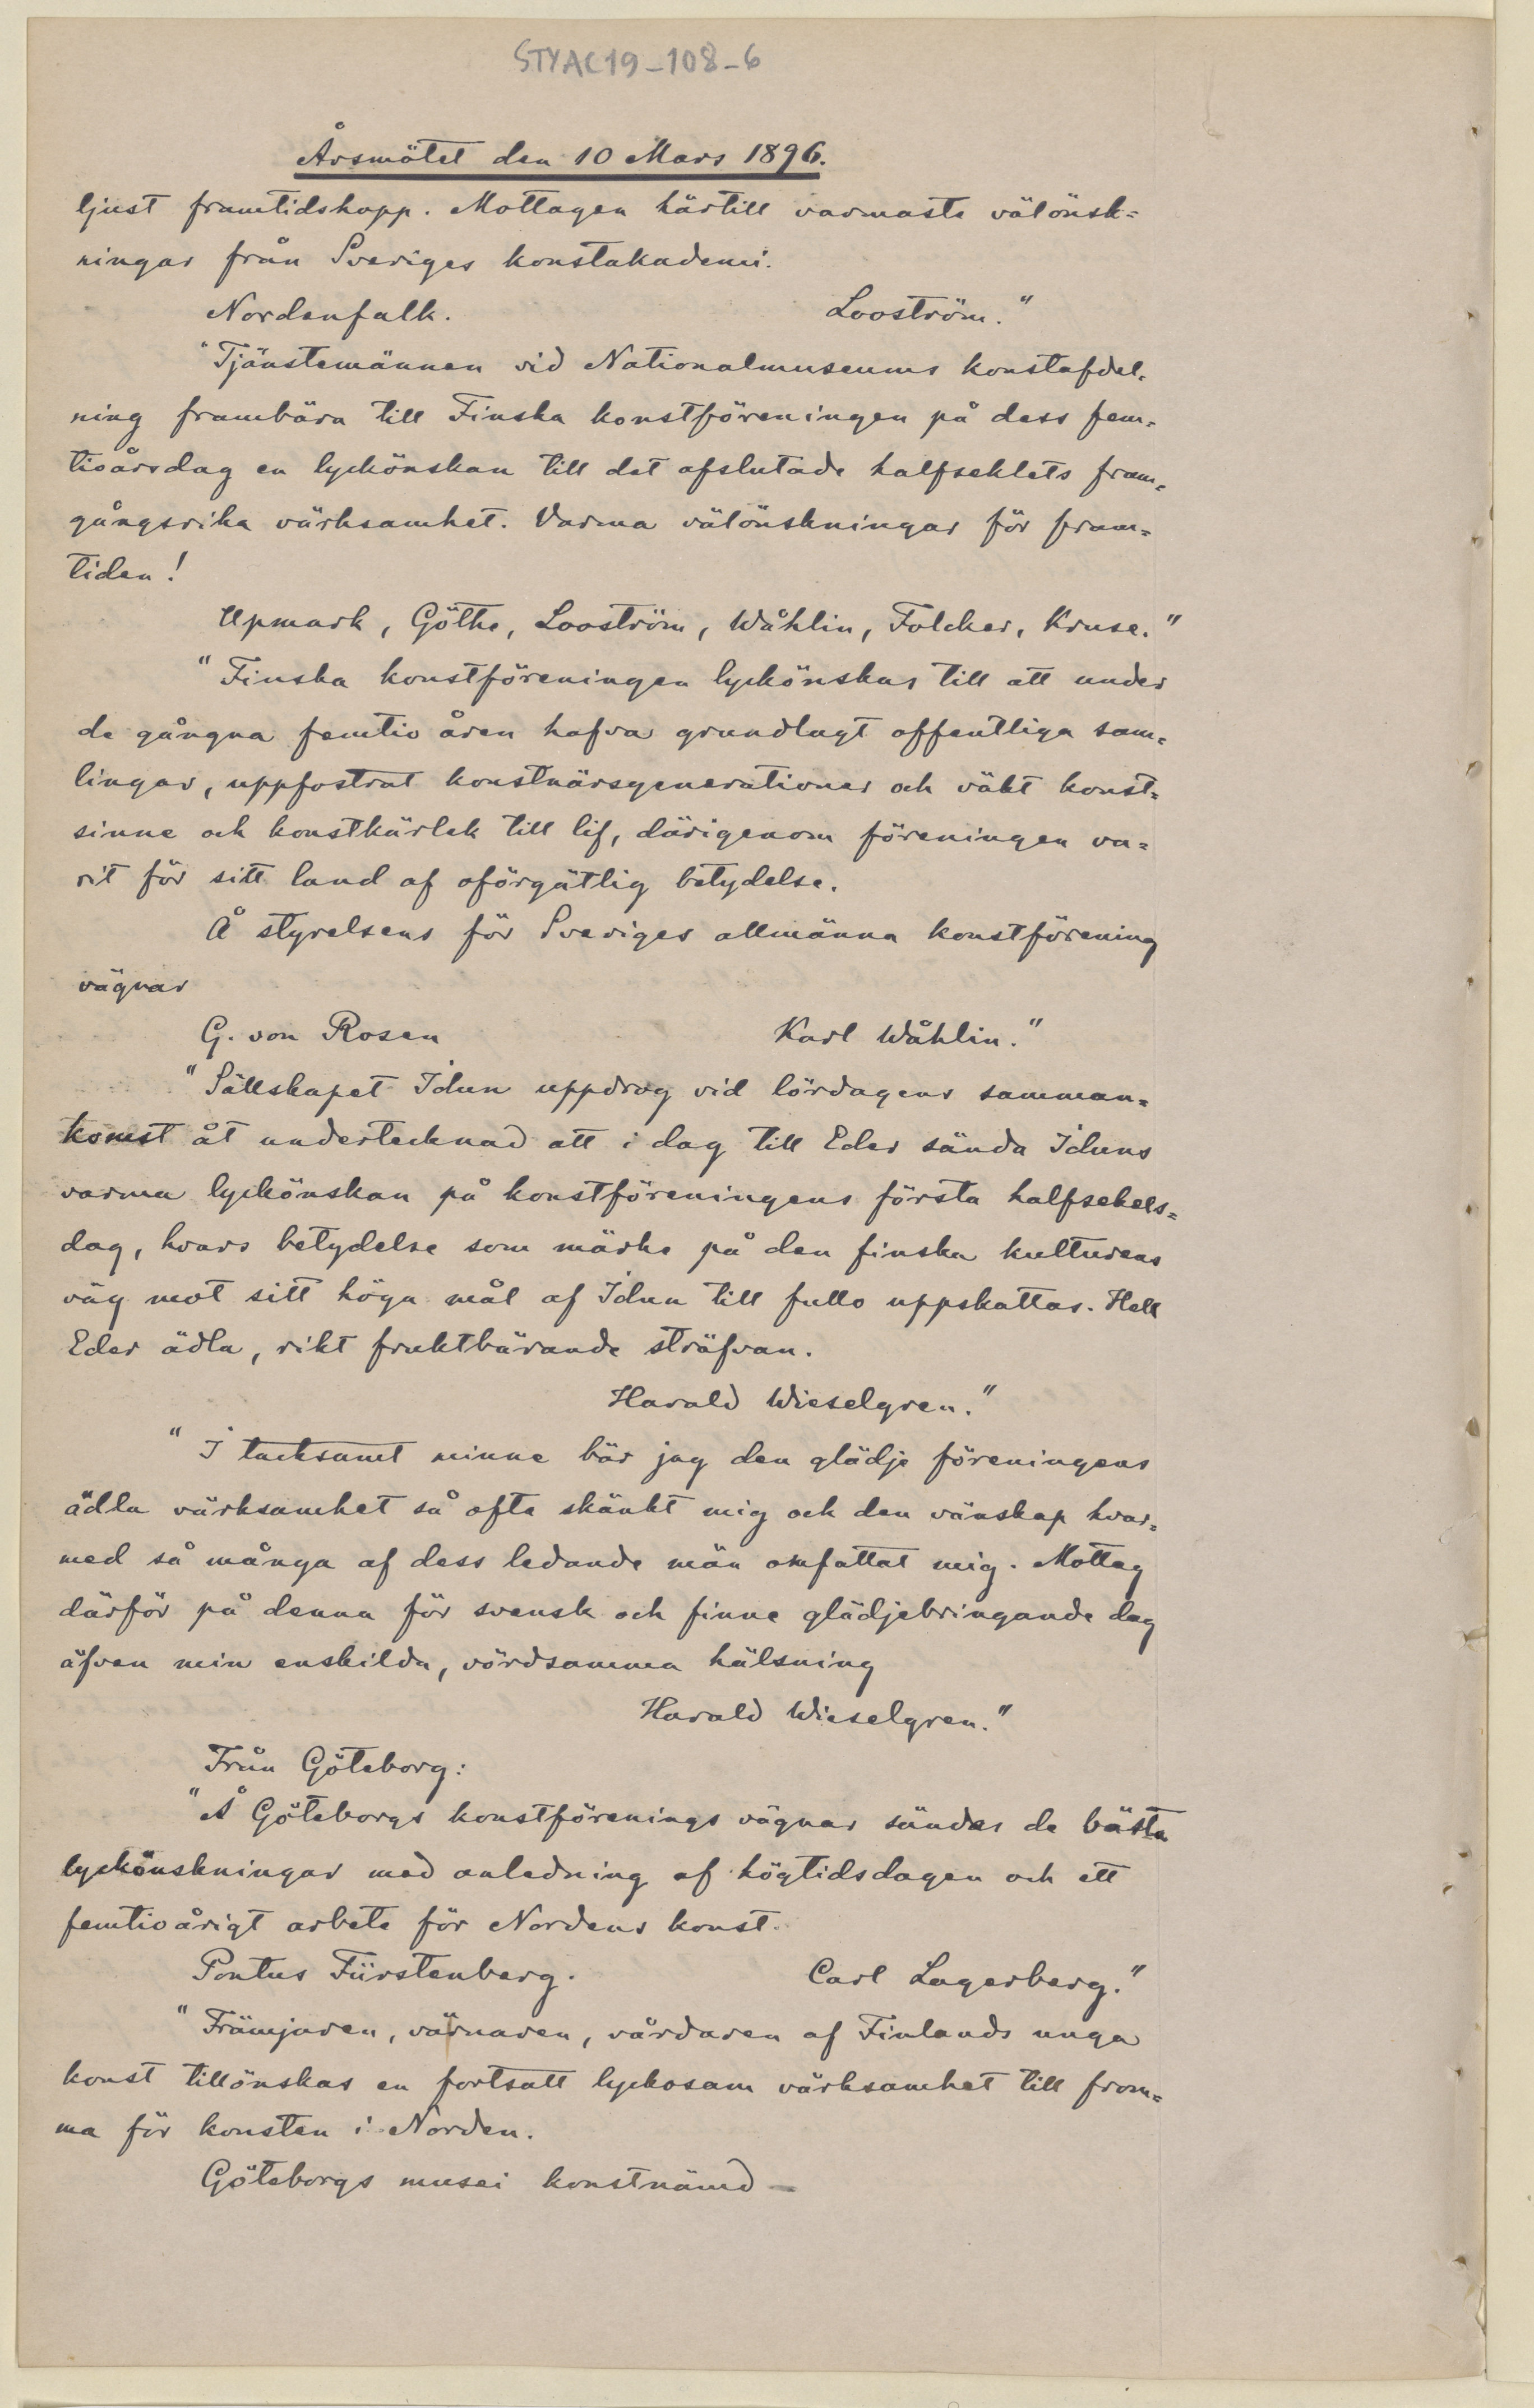 STYAC19-108-6
Årsmötet den 10 Mars 1896.
ljust framtidshopp. Mottagen härtill varmaste välönsk=
ningar från Sveriges konstakademi.
Nordenfalk. Looström."
"Tjänstemännen vid Nationalmuseums konstafdel=
ning frambära till Finska konstföreningen på dess fem=
tioårsdag en lyckönskan till det afslutade halfseklets fram=
gångsrika värksamhet. Varma välönskningar för fram=
tiden!
Upmark, Göthe, Looström, Wåhlin, Folcker, Kruse."
"Finska konstföreningen lyckönskas till att under
de gångna femtio åren hafva grundlagt offentliga sam=
lingar, uppfostrat konstnärsgenerationer och väkt konst=
sinne och konstkärlek till lif, därigenom föreningen va=
rit för sitt land af oförgätlig betydelse.
Å styrelsens för Sveriges allmänna konstförening
vägnar
G. von Rosen Karl Wåhlin."
"Sällskapet Idun uppdrog vid lördagens samman=
komst åt undertecknad att i dag till Eder sända Iduns
varma lyckönskan på konstföreningens första halfsekels=
dag, hvars betydelse som märke på den finska kulturens
väg mot sitt höga mål af Idun till fullo uppskattas. Hell
Eder ädla, rikt fruktbärande sträfvan.
Harald Wieselgren."
"I tacksamt minne bär jag den glädje föreningens
ädla värksamhet så ofta skänkt mig och den vänskap hvar=
med så många af dess ledande män omfattat mig. Mottag
därför på denna för svensk och finne glädjebringande dag
äfven min enskilda, vördsamma hälsning
Harald Wieselgren."
Från Göteborg:
"Å Göteborgs konstförenings vägnar sändes de bästa
lyckönskningar med anledning af högtidsdagen och ett
femtioårigt arbete för Nordens konst.
Pontus Fürstenberg. Carl Lagerberg."
"Främjaren, värnaren, vårdaren af Finlands unga
konst tillönskas en fortsatt lyckosam värksamhet till from=
ma för konsten i Norden.
Göteborgs musei konstnämd —